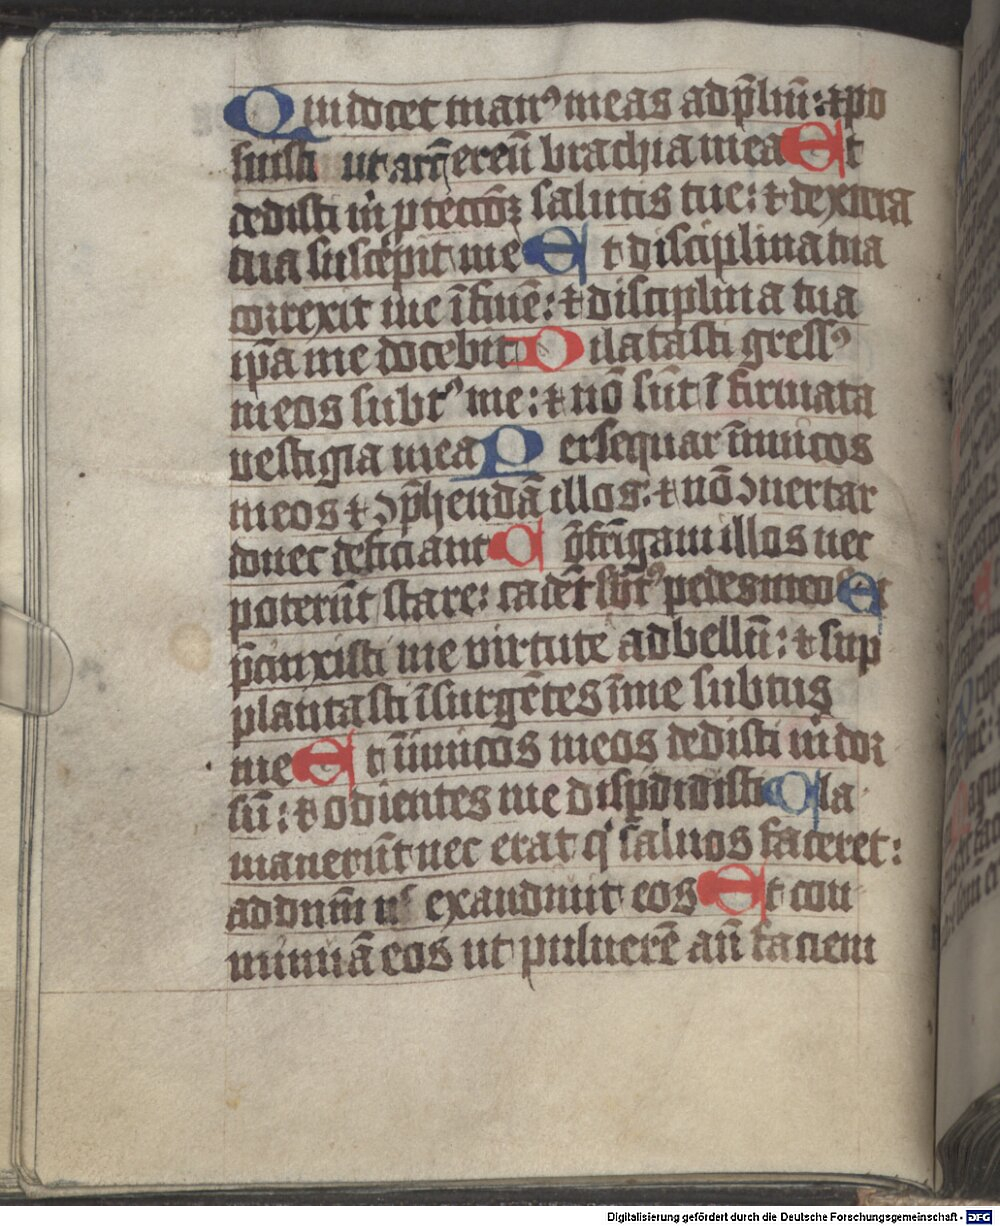 Qui docet man⁹ meas ad p̄liū: ⁊ po
suisti ut arc̄ ereū brachia mea Et
dedisti m̄ ꝓtectōꝫ salutis tue: ⁊ dextera
tua suscepit me Et disciplina tua
correxit me ī finē: ⁊ disciplina tua
ip̄a me docebit Dilatasti gress⁹
meos subt⁹ me: ⁊ nō sūt ī firmata
vestigia mea Persequar īimicos
meos ⁊ ꝯp̄hendā illos: ⁊ nō ꝯuertar
donec deficiant Cōfrīgam illos nec
poterūt stare: cadēt sbt⁹ pedes meos Et
p̄cinxisti me virtute ad bellū: ⁊ sup
plantasti īsurgētes ī me subtus
me Et īimicos meos dedisti m̄ dor
sū: ⁊ odientes me disꝑdidisti Cla
mauerūt nec erat qͥ saluos faceret:
ad dnm̄ nͨ exaudiuit eos Et com
minuā eos ut puluerē an̄ faciem
Digitalisierung gefördert durch die Deutsche Forschungsgemeinschaft - DFG